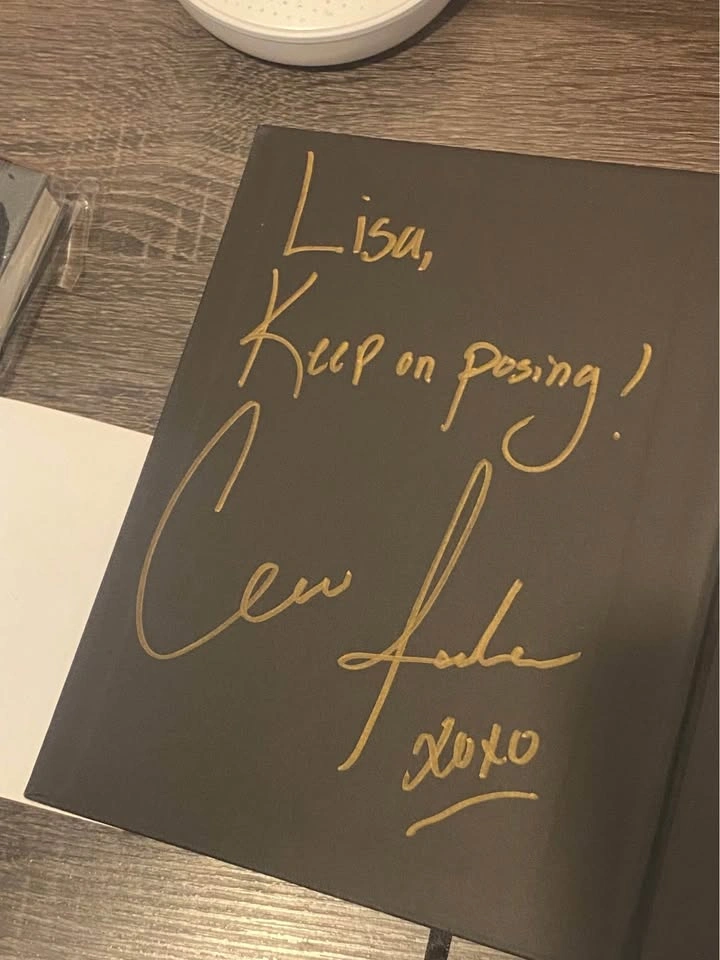 Lisa,
Keep on posing!
xoxo